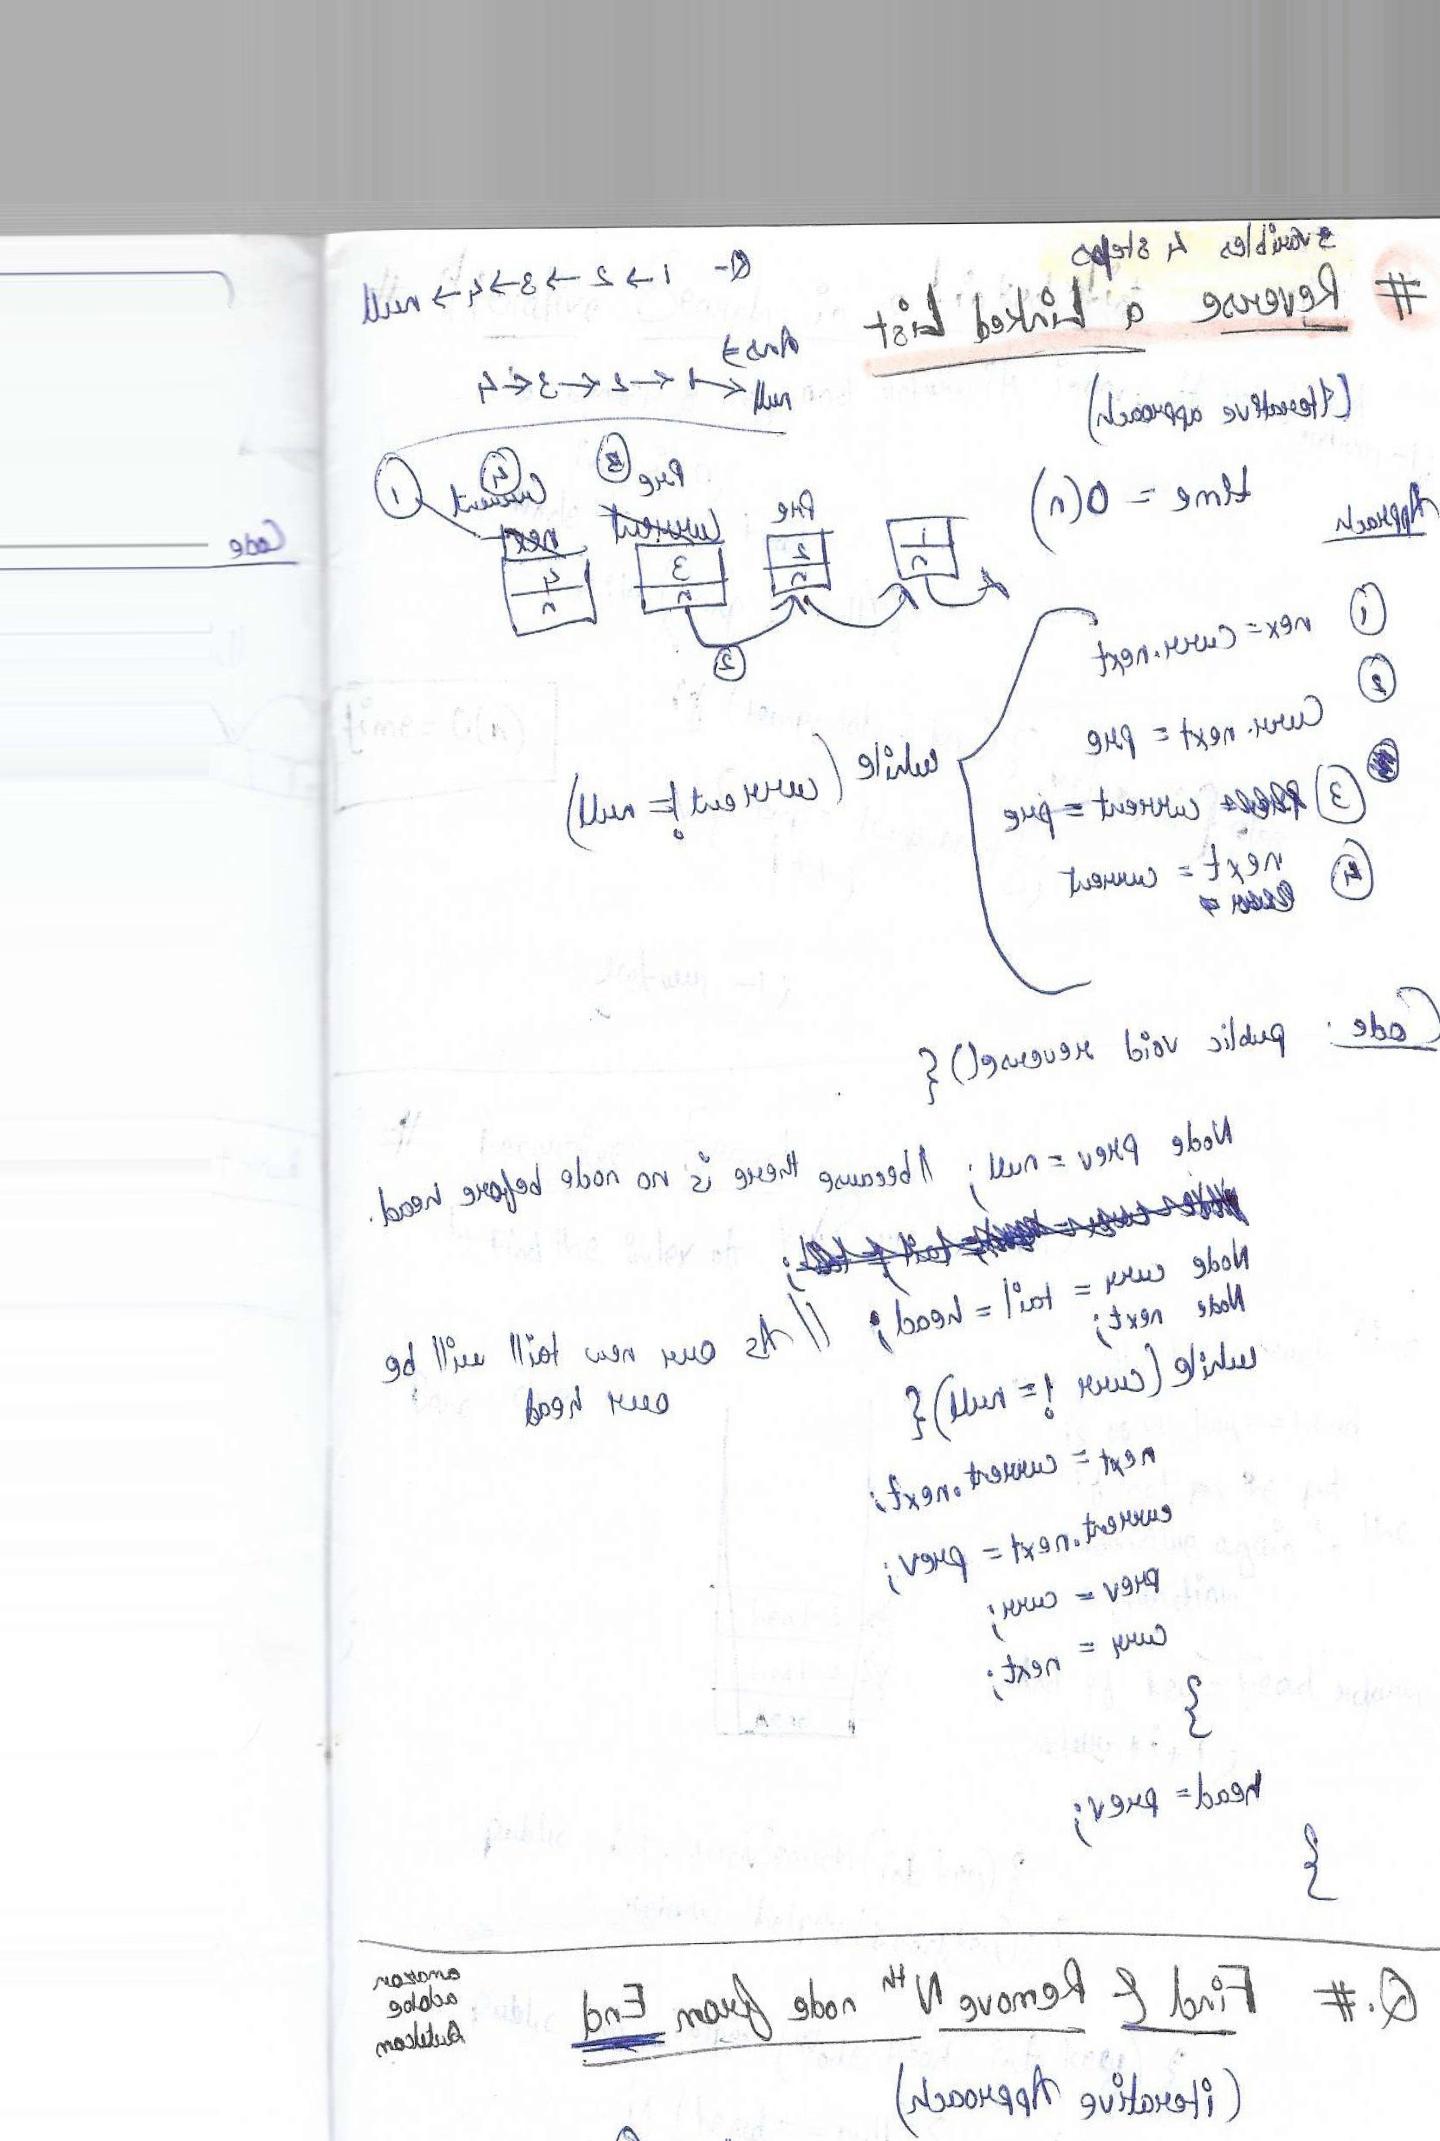 3 Variables 4 steps
# Reverse a Linked List
(Iterative approach)
Q- 1 → 2 → 3 → 4 → null
Ans ⇒
null ← 1 ← 2 ← 3 ← 4
time = O(n)
Approach
1
n
Pre
2
n
③ Pre
current
3
n
④
current
nex
4
n
①
②
① nex = curr.next
② curr.next = pre
③ current = pre
④ next = current
while (current != null)
Code : public void reverse() {
Node prev = null; // because there is no node before head.
Node curr = tail = head; // As our new taill will be
our head
Node next;
while (curr != null) {
next = current.next;
current.next = prev;
prev = curr;
curr = next;
}
head = prev;
}
Q.# Find & Remove Nth node from End
amazon
adobe
(iterative Approach)
Code
time = O(n)